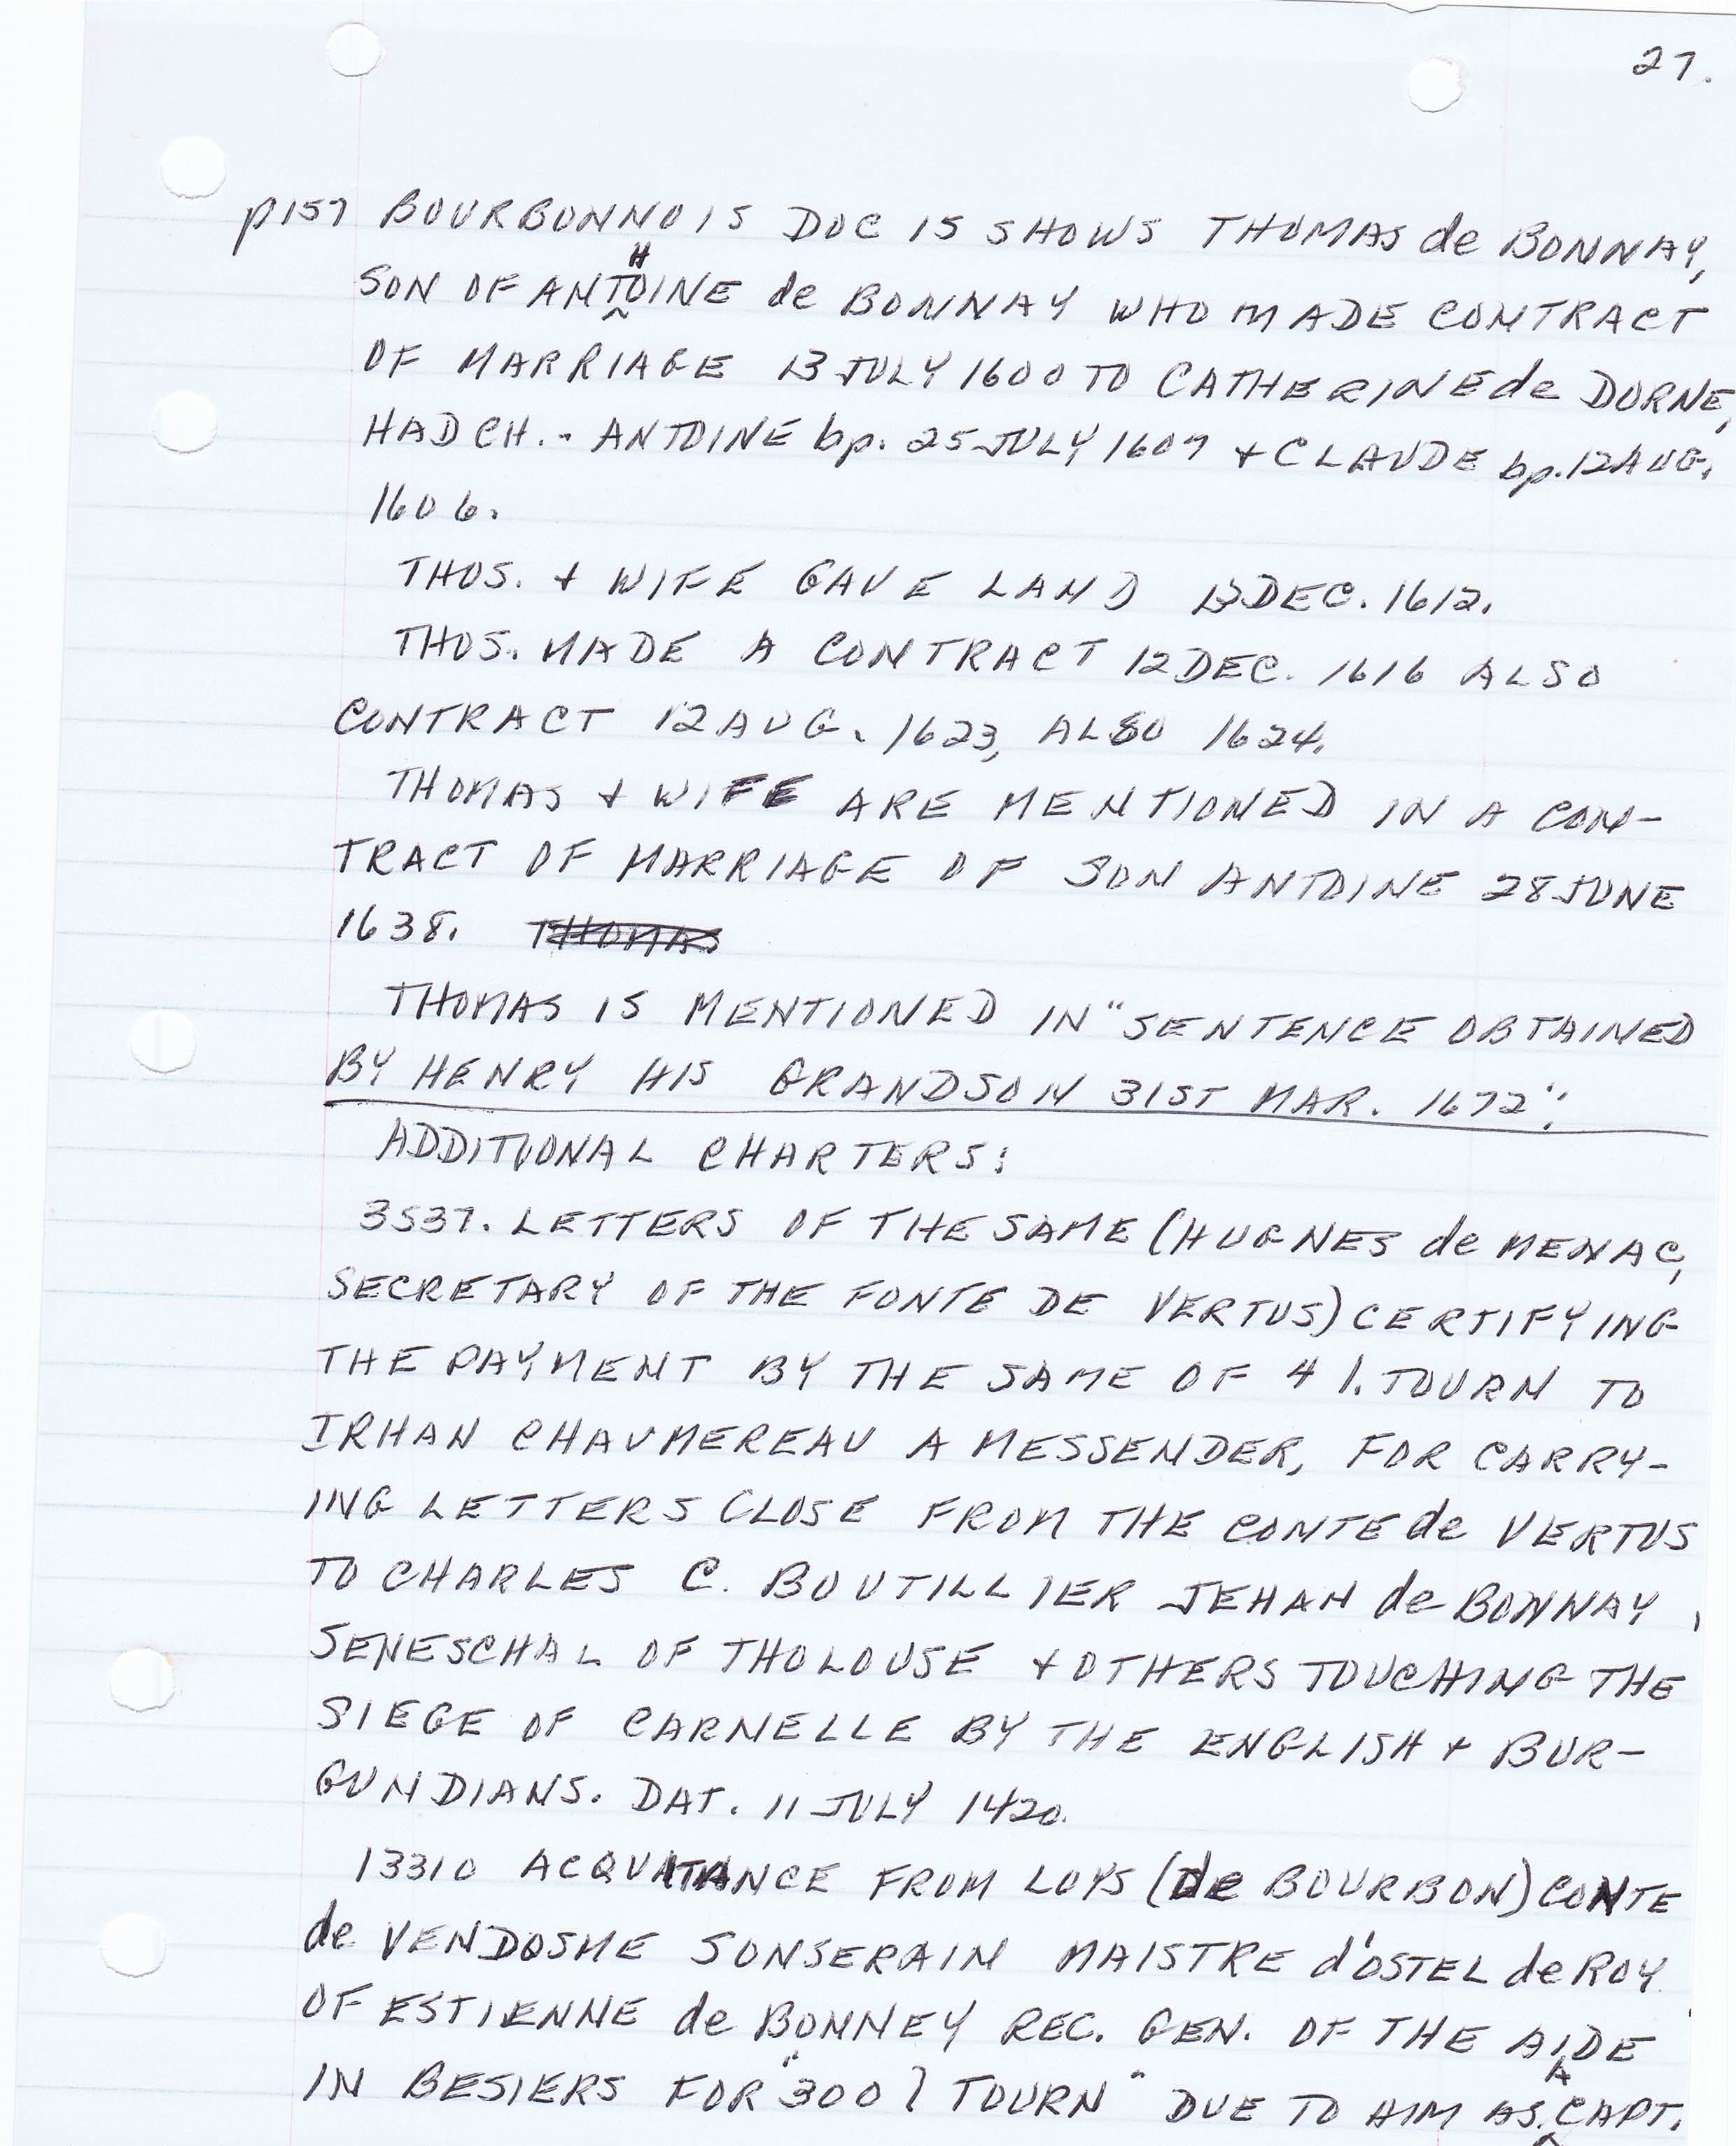 27.
p157 BOURBONNOIS DOC 15 SHOWS THOMAS de BONNAY,
SON OF ANTHOINE de BONNAY WHO MADE CONTRACT
OF MARRIAGE 13 JULY 1600 TO CATHERINE de DORNE,
HAD CH. - ANTOINE bp. 25 JULY 1607 + CLAUDE bp. 12 AUG.
1606.
THOS. + WIFE GAVE LAND 13 DEC. 1612.
THOS. MADE A CONTRACT 12 DEC. 1616 ALSO
CONTRACT 12 AUG. 1623, ALSO 1624.
THOMAS + WIFE ARE MENTIONED IN A CON-
TRACT OF MARRIAGE OF SON ANTOINE 28 JUNE
1638. THOMAS
THOMAS IS MENTIONED IN "SENTENCE OBTAINED
BY HENRY HIS GRANDSON 31ST MAR. 1672".
ADDITIONAL CHARTERS:
3537. LETTERS OF THE SAME (HUGNES de MENAC,
SECRETARY OF THE FONTE DE VERTUS) CERTIFYING
THE PAYMENT BY THE SAME OF 4 l. TOURN TO
IRHAN CHAUMEREAU A MESSENDER, FOR CARRY-
ING LETTERS CLOSE FROM THE CONTE de VERTUS
TO CHARLES C. BOUTILLIER JEHAN de BONNAY,
SENESCHAL OF THOLOUSE + OTHERS TOUCHING THE
SIEGE OF CARNELLE BY THE ENGLISH + BUR-
GUNDIANS. DAT. 11 JULY 1420.
13310 ACQUITANCE FROM LOYS (de BOURBON) CONTE
de VENDOSME SONSERAIN MAISTRE d'OSTEL de ROY
OF ESTIENNE de BONNEY REC. GEN. OF THE AIDE
IN BESIERS FOR "300 l TOURN" DUE TO HIM AS CAPT.